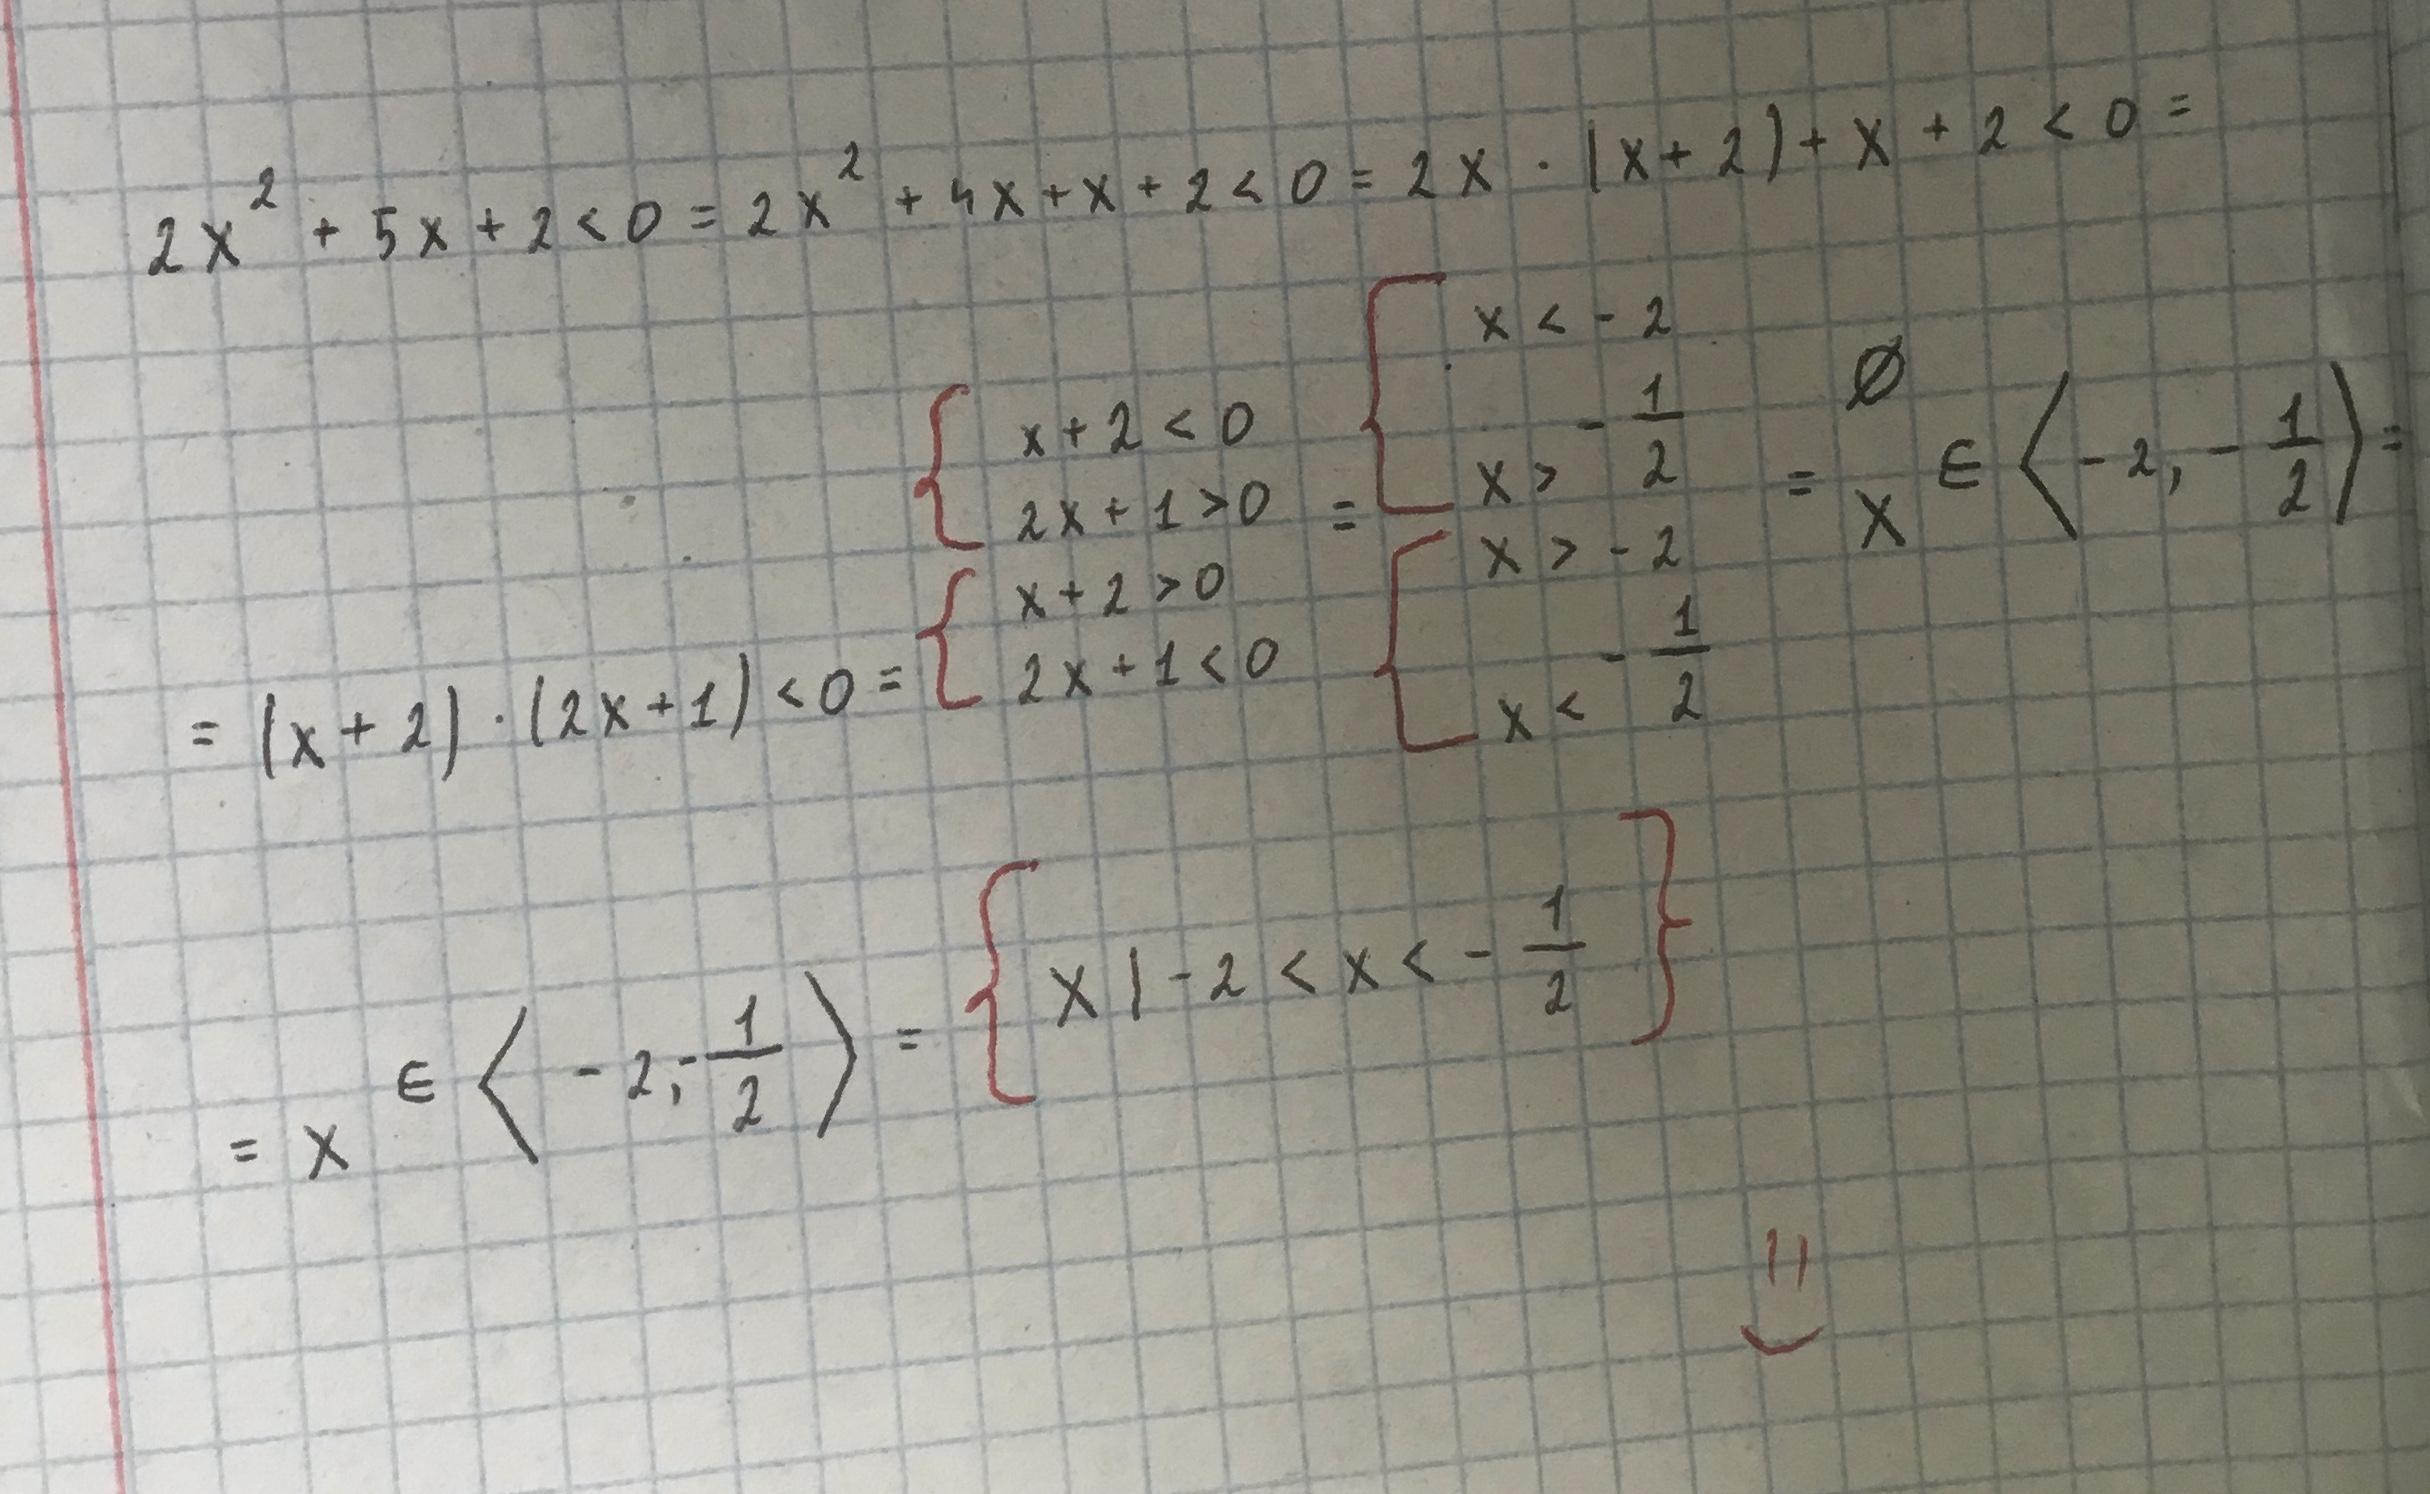 2x² + 5x + 2 < 0 = 2x² + 4x + x + 2 < 0 = 2x · (x + 2) + x + 2 < 0 =
= (x + 2) · (2x + 1) < 0 = { x + 2 < 0
2x + 1 > 0
{ x + 2 > 0
2x + 1 < 0
= { x < -2
x > -1/2
{ x > -2
x < -1/2
= ∅
x ∈ ⟨-2, -1/2⟩ =
= x ∈ ⟨-2, -1/2⟩ = { x | -2 < x < -1/2 }